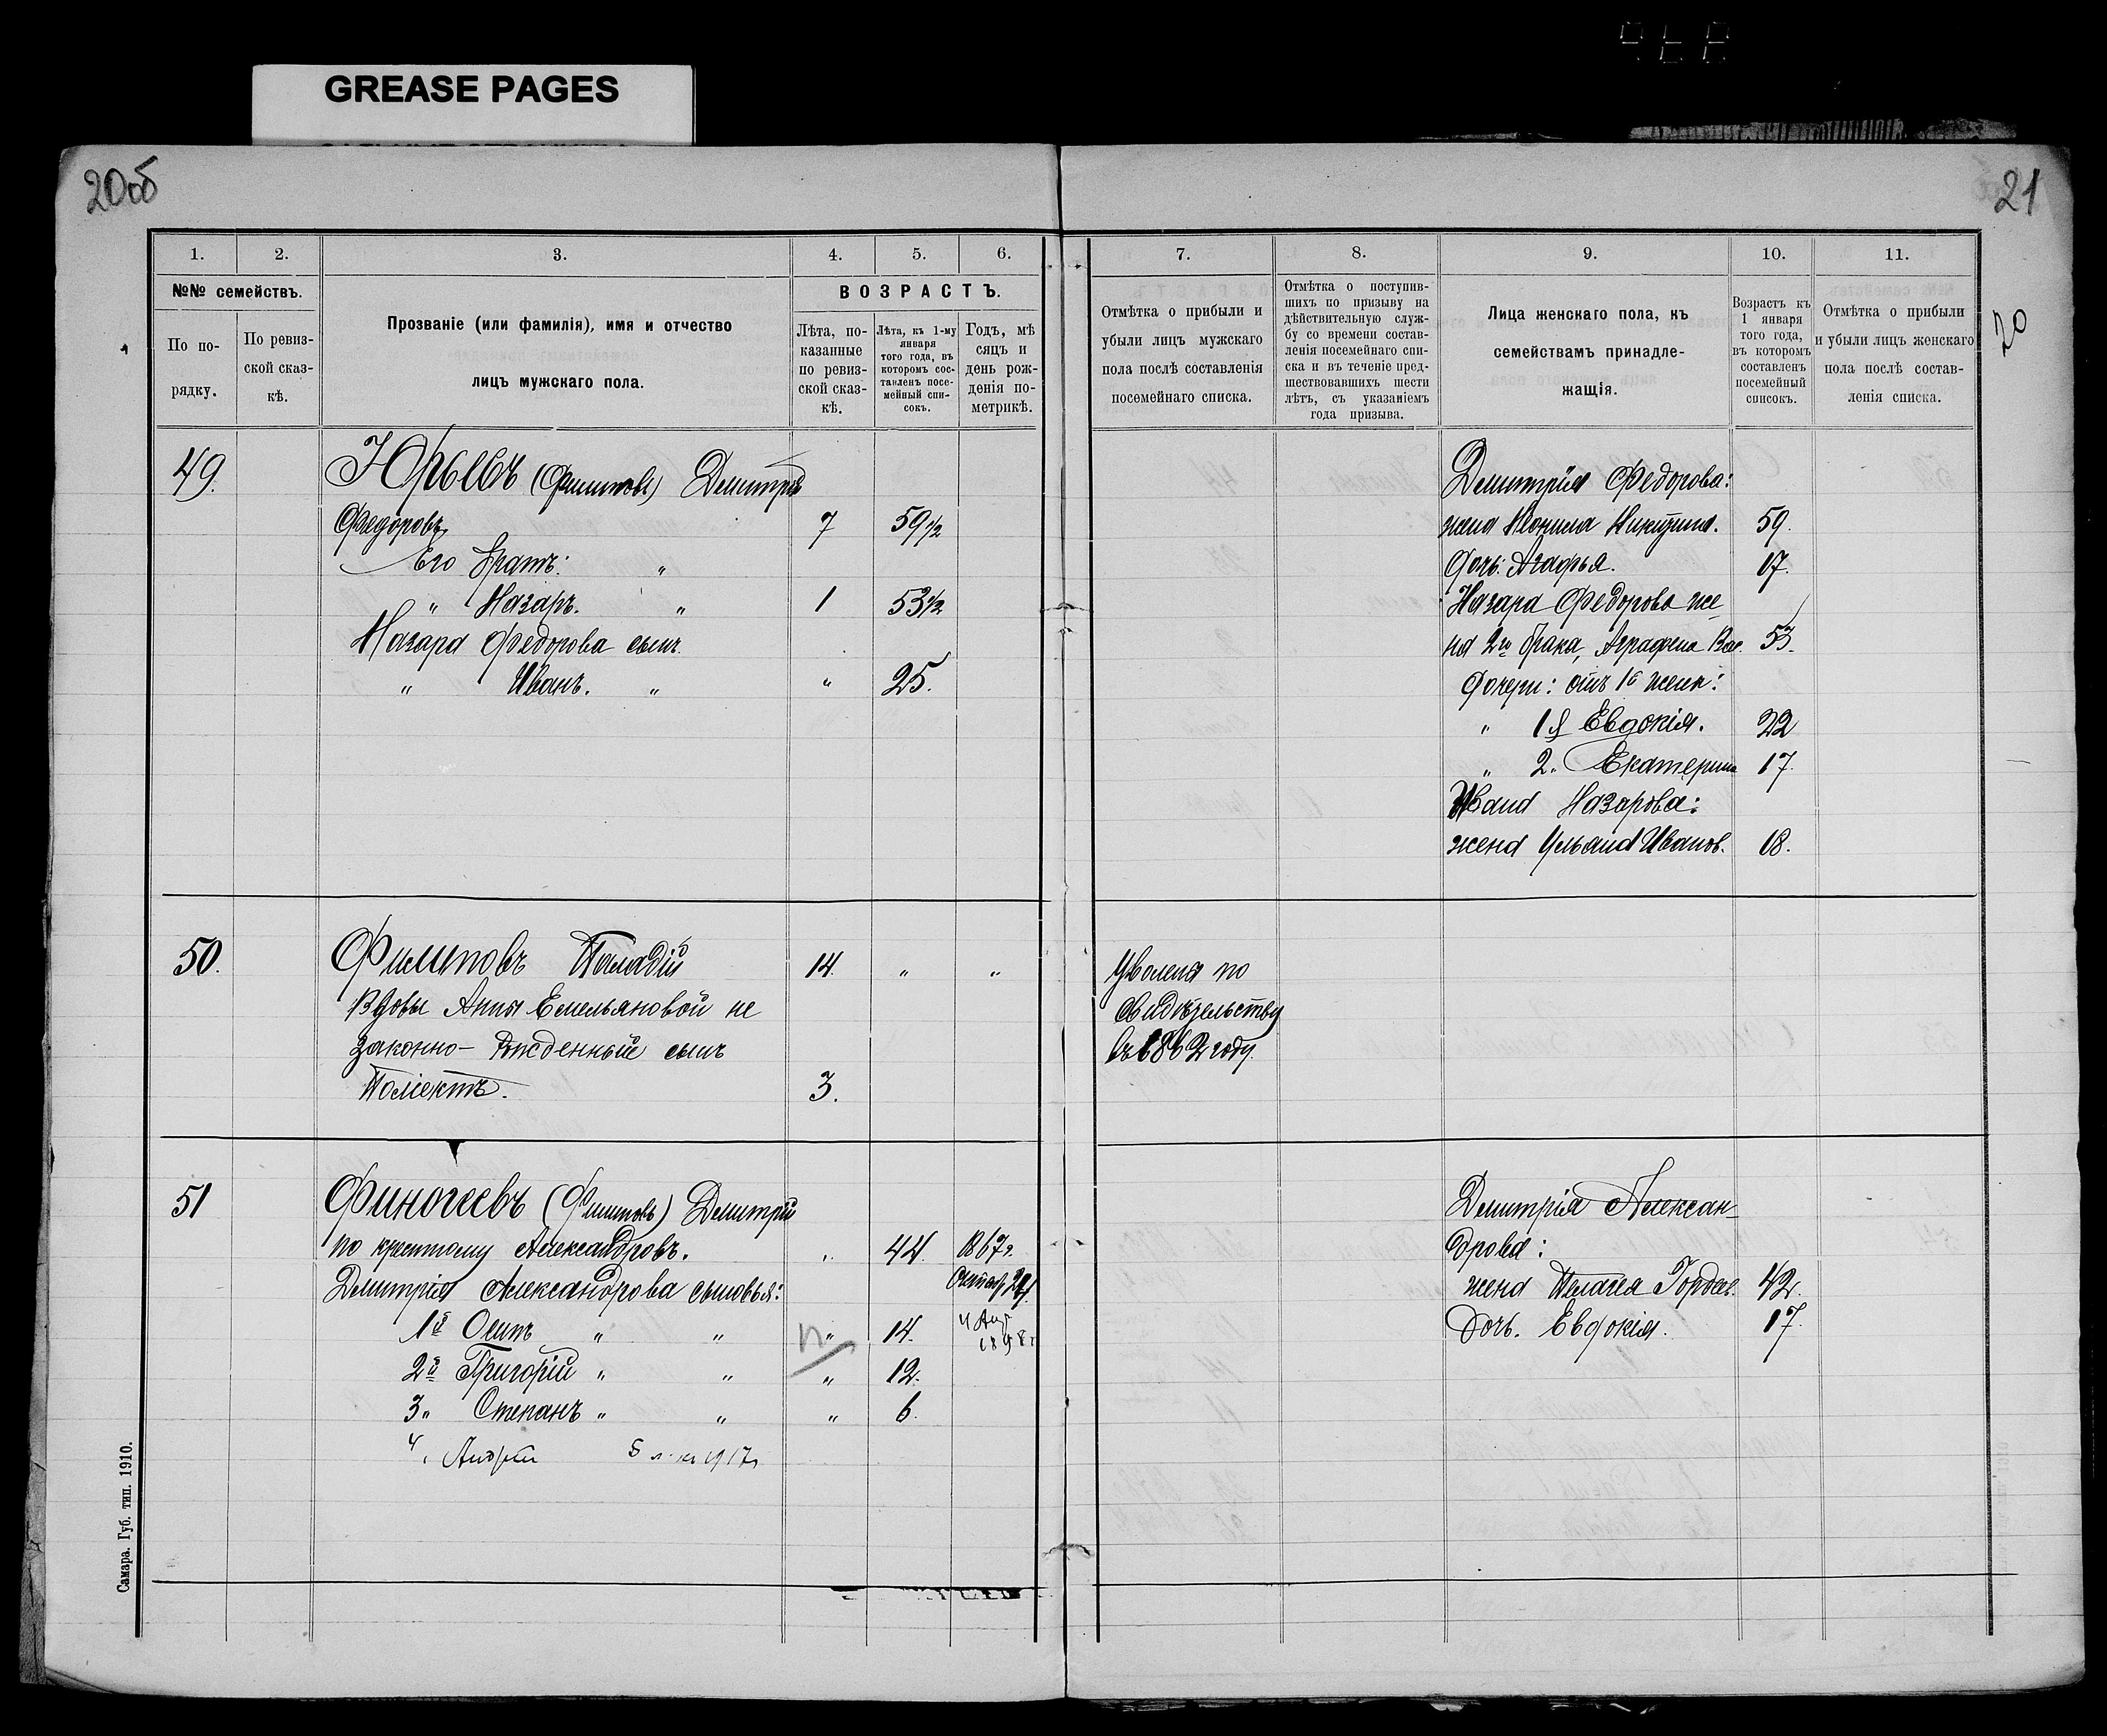 GREASE PAGES
20об
21
20
1.
2.
3.
4.
5.
6.
№№ семействъ.
По по-
рядку.
По ревиз-
ской сказ-
кѣ.
Прозваніе (или фамилія), имя и отчество
лицъ мужскаго пола.
ВОЗРАСТЪ.
Лѣта, по-
казанные
по ревиз-
ской сказ-
кѣ.
Лѣта, къ 1-му
января
того года, въ
которомъ сос-
тавленъ посе-
мейный спи-
сокъ.
Годъ, мѣ
сяцъ и
день рож-
денія по-
метрикѣ.
7.
8.
9.
10.
11.
Отмѣтка о прибыли и
убыли лицъ мужскаго
пола послѣ составленія
посемейнаго списка.
Отмѣтка о поступив-
шихъ по призыву на
дѣйствительную служ-
бу со времени состав-
ленія посемейнаго спи-
ска и въ теченіе пред-
шествовавшихъ шести
лѣтъ, съ указаніемъ
года призыва.
Лица женскаго пола, къ
семействамъ принадле-
жащія.
Возрастъ къ
1 января
того года,
въ которомъ
составленъ
посемейный
списокъ.
Отмѣтка о прибыли
и убыли лицъ женскаго
пола послѣ состав-
ленія списка.
49. Юрьевъ (Филиповъ) Дмитрій
Федоровъ 7 59 1/2
Его братъ: "
" Назаръ. " 1 53 1/2
Назара Федорова сынъ
" Иванъ. " " 25.
Дмитрія Федорова:
жена Неонила Никитина. 59.
Дочь: Агафья. 17.
Назара Федорова же
на 2го брака, Аграфена Вас. 53.
Дочери: отъ 1й жены:
" 1я Евдокія. 22
" 2. Екатерина 17.
Ивана Назарова:
жена Ульяна Иванов. 18.
50. Филиповъ Паладій 14. " "
Вдовы Анны Емельяновой не
законно-рожденный сынъ
Поліектъ. 3.
Уволена по
свидѣтельству
въ 1862 году.
51 Финогеевъ (Филиповъ) Дмитрій
по крестному Александровъ. " 44. 1867г.
Октяб 24
Дмитрія Александрова сыновья:
1й Осипъ " " " 14. 4 Апр
1898г
2й Григорій " " " 12.
3" Степанъ " " " 6.
4. Андрей 5 л. къ 1917г
Дмитрія Алексан-
дрова:
жена Пелагея Гордеев. 42.
Дочь. Евдокія. 17.
Самара. Губ. тип. 1910.